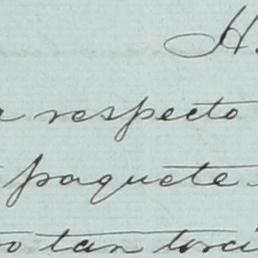 H
respecto
paquete
tan torci